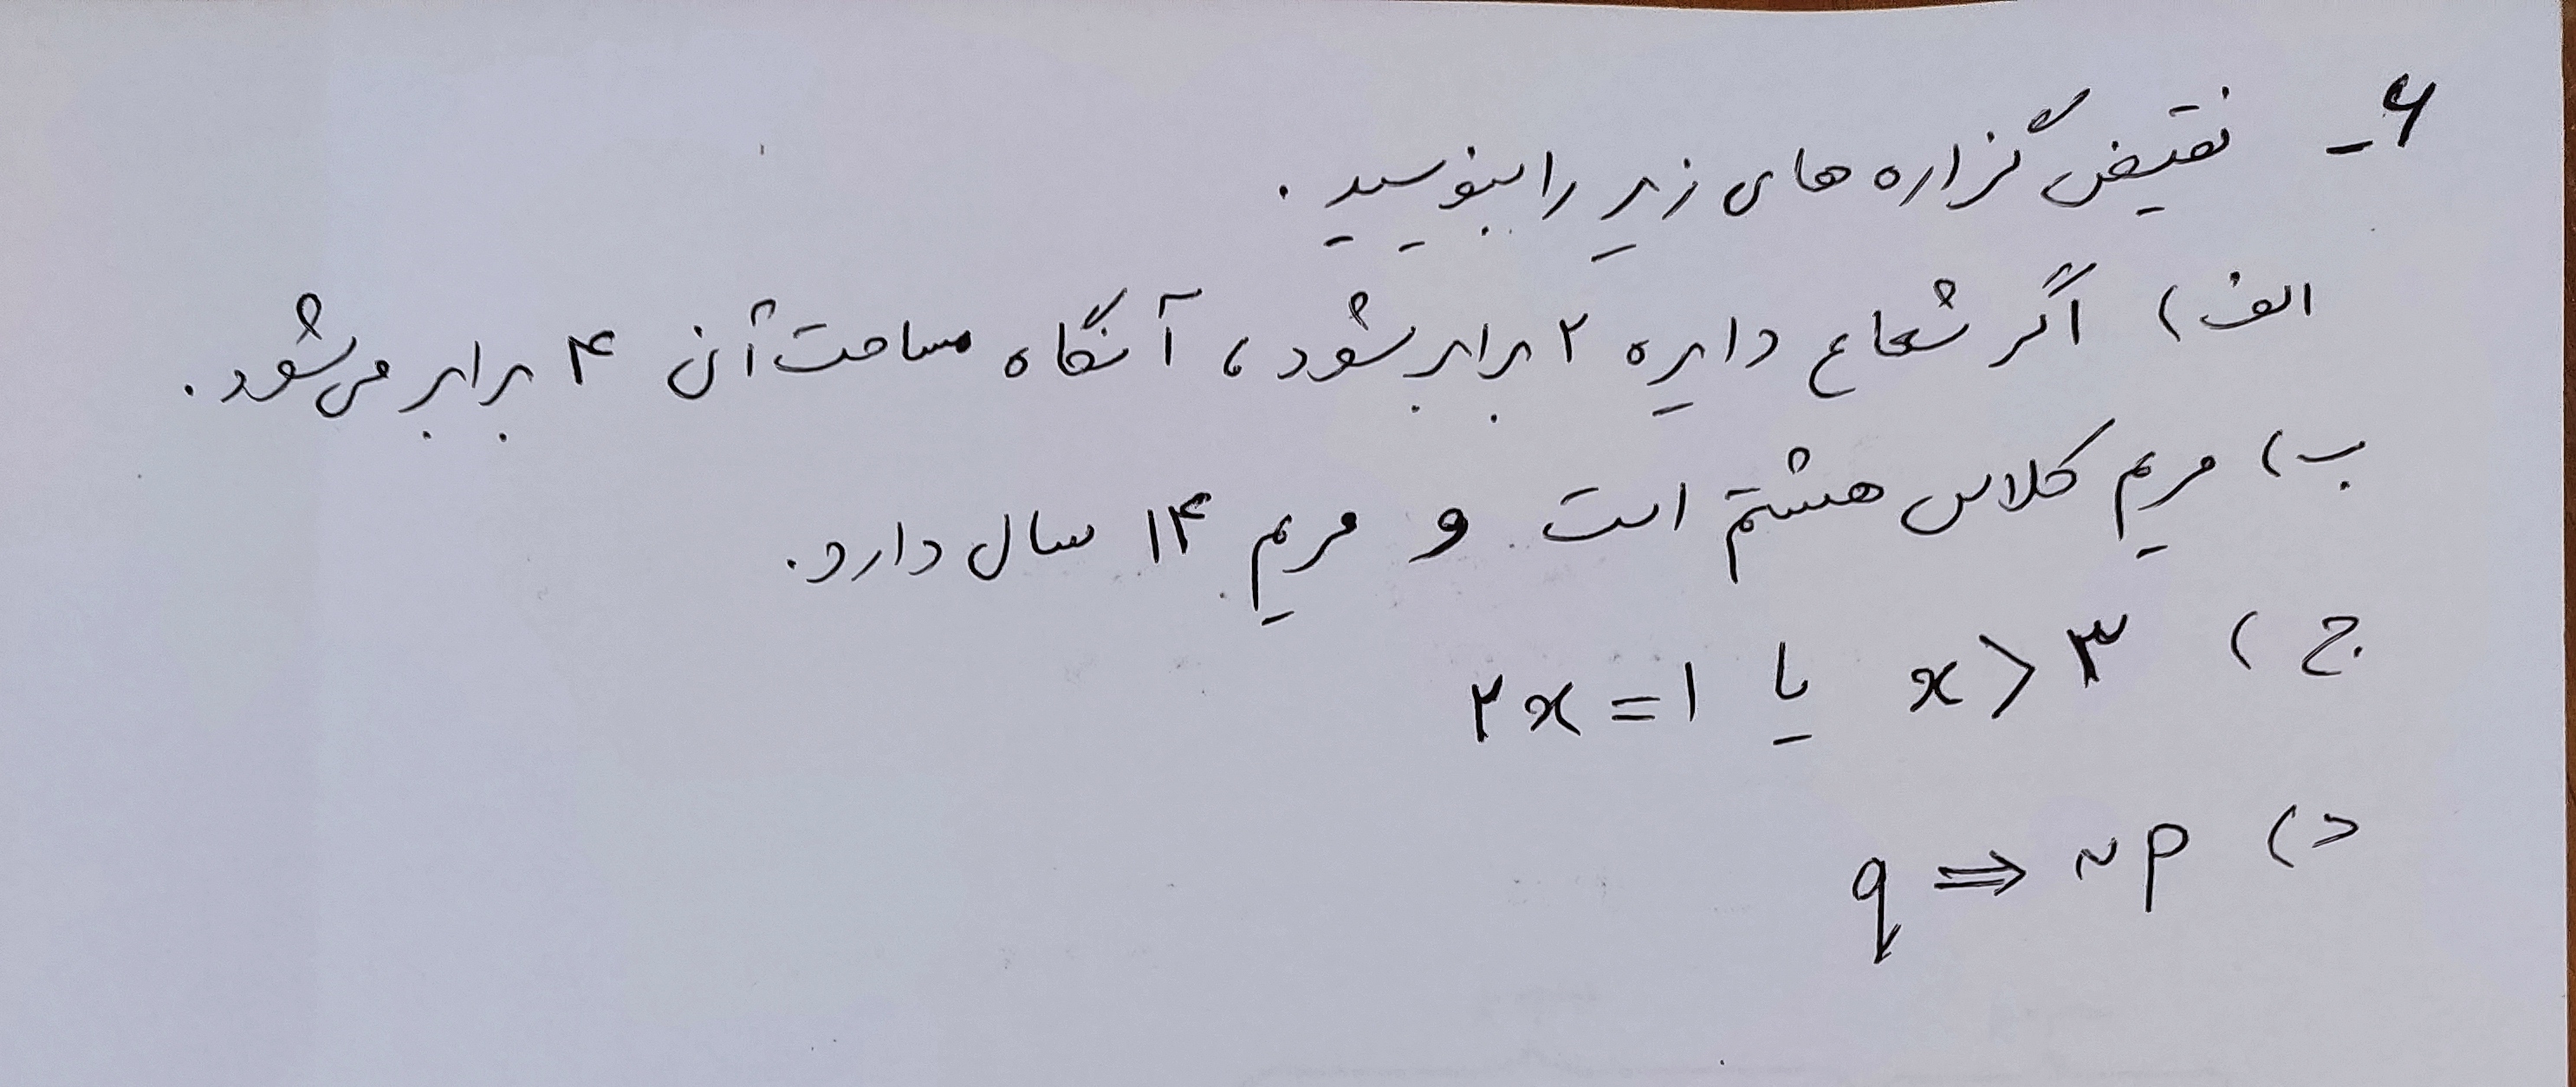 ۶- نقیض گزاره های زیر را بنویسید.
الف) اگر شعاع دایره ۲ برابر شود، آنگاه مساحت آن ۴ برابر می‌شود.
ب) مریم کلاس هشتم است و مریم ۱۴ سال دارد.
ج) x > ۳ یا ۲x = ۱
د) q ⇒ ~p